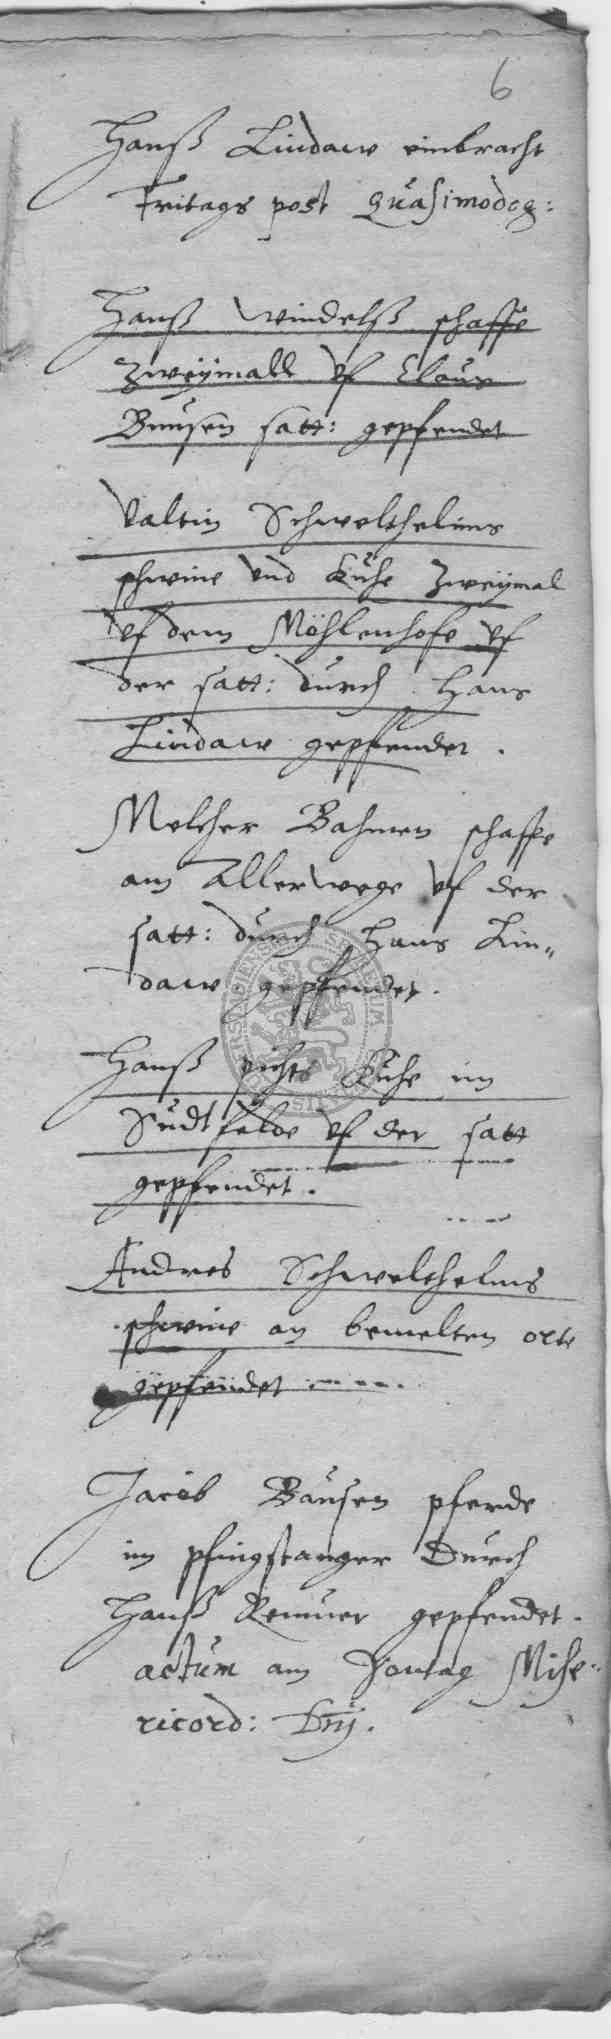 6
Hanß Lindaw einbracht
Fritags post Quasimodog:
Hanß Windelß schaffe
Zweÿmall vf Claus
Bausen satt: gepfendet
Valtin Schwelthelms
schwine vnd Kuhe Zweÿmal
vf dem Möhlenhofe vf
der satt: durch Hans
Lindaw gepfendet.
Melcher Bahmen schaffe
am Allerwege vf der
satt: durch Hans Lin„
daw gepfendet.
Hanß pichts Kuhe im
Sudtfelde vf der satt
gepfendet.
Andres Schwelthelms
schwine an bemelten orte
gepfendet
Jacob Bausen pferde
im pfingstanger Durch
Hanß gepfendet.
actum am Sontag Mise„
ricord: Dnj.